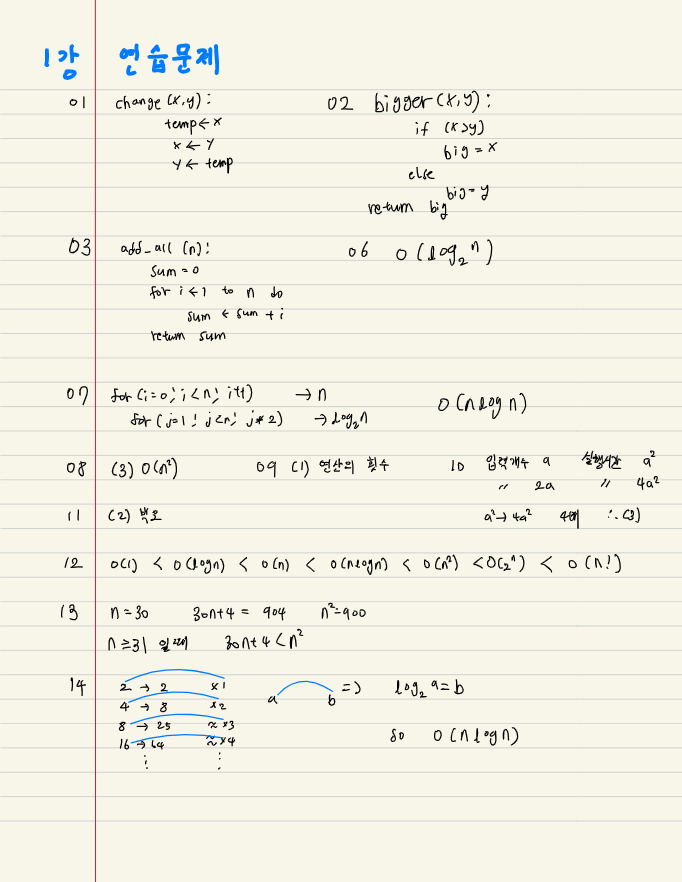 1강 연습문제
01 change (x,y):
temp ← x
x ← y
y ← temp
02 bigger (x,y):
if (x>y)
big = x
else
big = y
return big
03 add_all (n):
sum = 0
for i ← 1 to n do
sum ← sum + i
return sum
06 O(log₂n)
07 for (i=0; i<n; i++) → n
for (j=1; j<n; j*2) → log₂n
O(nlogn)
08 (3) O(n²) 09 (1) 연산의 횟수 10 입력개수 a 실행시간 a²
〃 2a 〃 4a²
11 (2) 빅오 a² → 4a² 4배 ∴ (3)
12 O(1) < O(logn) < O(n) < O(nlogn) < O(n²) < O(2ⁿ) < O(n!)
13 n=30 30n+4 = 904 n²=900
n≥31 일 때 30n+4 < n²
14 2 → 2 x1 a b => log₂a = b
4 → 8 x2
8 → 25 ≈x3
16 → 64 ≈x4 so O(nlogn)
⋮ ⋮